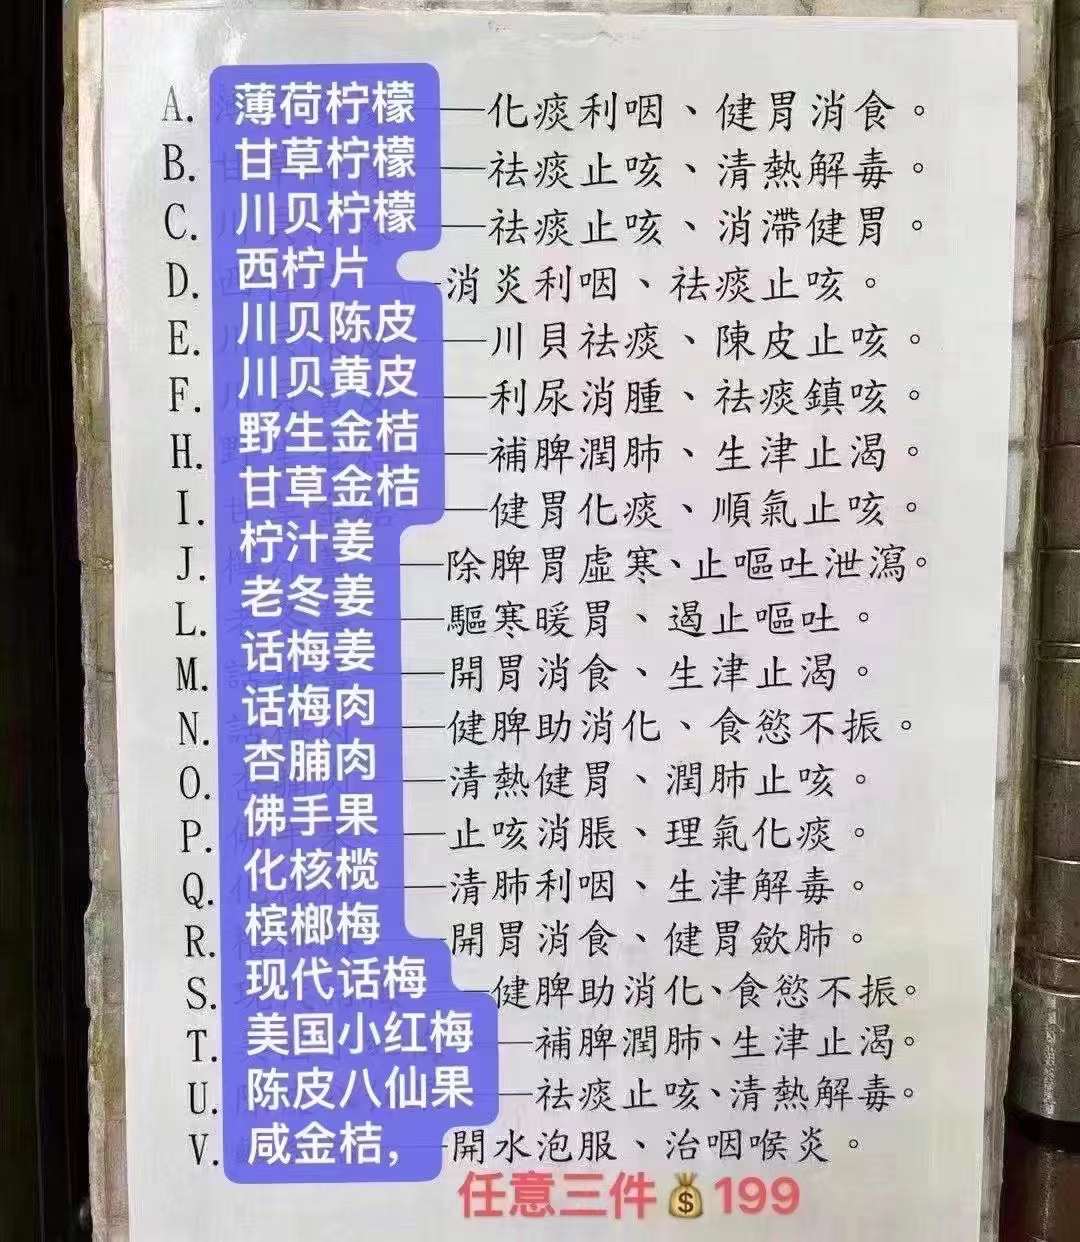 A. 薄荷柠檬——化痰利咽、健胃消食。
B. 甘草柠檬——祛痰止咳、清熱解毒。
C. 川贝柠檬——祛痰止咳、消滯健胃。
D. 西柠片——消炎利咽、祛痰止咳。
E. 川贝陈皮——川貝祛痰、陳皮止咳。
F. 川贝黄皮——利尿消腫、祛痰鎮咳。
H. 野生金桔——補脾潤肺、生津止渴。
I. 甘草金桔——健胃化痰、順氣止咳。
J. 柠汁姜——除脾胃虛寒、止嘔吐泄瀉。
L. 老冬姜——驅寒暖胃、遏止嘔吐。
M. 话梅姜——開胃消食、生津止渴。
N. 话梅肉——健脾助消化、食慾不振。
O. 杏脯肉——清熱健胃、潤肺止咳。
P. 佛手果——止咳消脹、理氣化痰。
Q. 化核榄——清肺利咽、生津解毒。
R. 槟榔梅——開胃消食、健胃歛肺。
S. 现代话梅——健脾助消化、食慾不振。
T. 美国小红梅——補脾潤肺、生津止渴。
U. 陈皮八仙果——祛痰止咳、清熱解毒。
V. 咸金桔，——開水泡服、治咽喉炎。
任意三件💰199